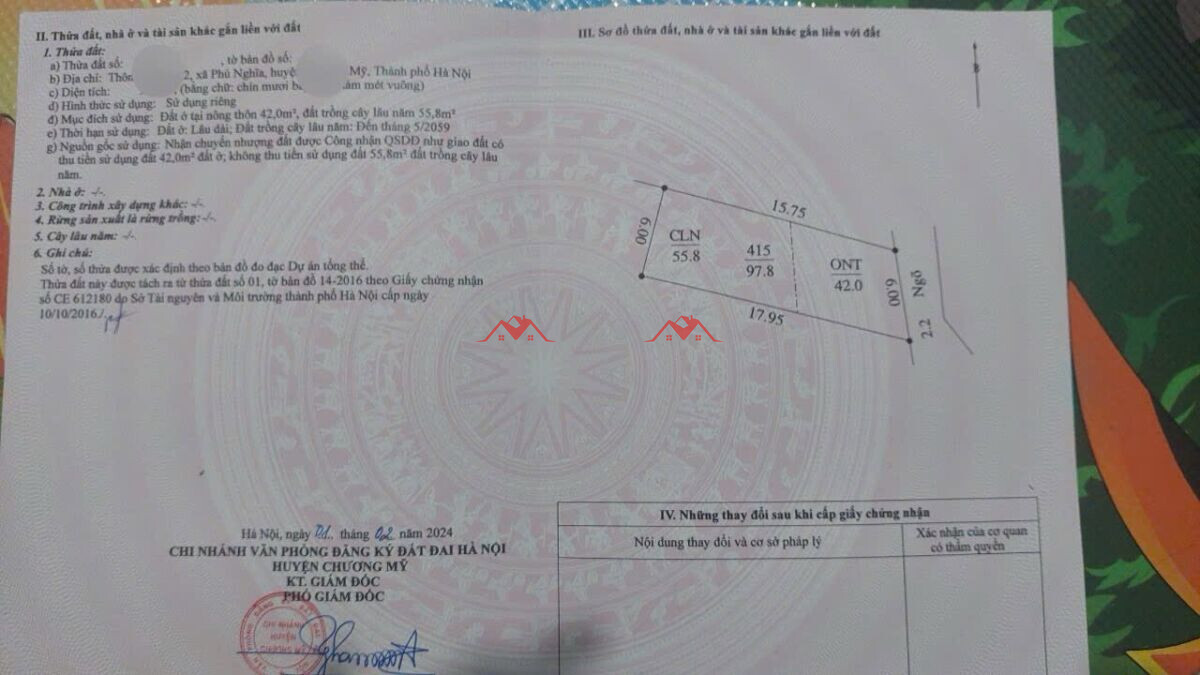 II. Thửa đất, nhà ở và tài sản khác gắn liền với đất
1. Thửa đất:
a) Thửa đất số: , tờ bản đồ số:
b) Địa chỉ: Thôn 2, xã Phú Nghĩa, huyện Mỹ, Thành phố Hà Nội
c) Diện tích: , (bằng chữ: chín mươi bả lăm mét vuông)
d) Hình thức sử dụng: Sử dụng riêng
đ) Mục đích sử dụng: Đất ở tại nông thôn 42,0m², đất trồng cây lâu năm 55,8m²
e) Thời hạn sử dụng: Đất ở: Lâu dài; Đất trồng cây lâu năm: Đến tháng 5/2059
g) Nguồn gốc sử dụng: Nhận chuyển nhượng đất được Công nhận QSDĐ như giao đất có
thu tiền sử dụng đất 42,0m² đất ở; không thu tiền sử dụng đất 55,8m² đất trồng cây lâu
năm.
2. Nhà ở: -/-.
3. Công trình xây dựng khác: -/-.
4. Rừng sản xuất là rừng trồng: -/-.
5. Cây lâu năm: -/-.
6. Ghi chú:
Số tờ, số thửa được xác định theo bản đồ đo đạc Dự án tổng thể.
Thửa đất này được tách ra từ thửa đất số 01, tờ bản đồ 14-2016 theo Giấy chứng nhận
số CE 612180 do Sở Tài nguyên và Môi trường thành phố Hà Nội cấp ngày
10/10/2016./.
III. Sơ đồ thửa đất, nhà ở và tài sản khác gắn liền với đất
B
15.75
6.00
CLN
55.8
415
97.8
ONT
42.0
6.00
Ngõ
2.2
17.95
Hà Nội, ngày tháng 02 năm 2024
CHI NHÁNH VĂN PHÒNG ĐĂNG KÝ ĐẤT ĐAI HÀ NỘI
HUYỆN CHƯƠNG MỸ
KT. GIÁM ĐỐC
PHÓ GIÁM ĐỐC
CHI NHÁNH
HUYỆN
CHƯƠNG MỸ
IV. Những thay đổi sau khi cấp giấy chứng nhận
Nội dung thay đổi và cơ sở pháp lý
Xác nhận của cơ quan
có thẩm quyền